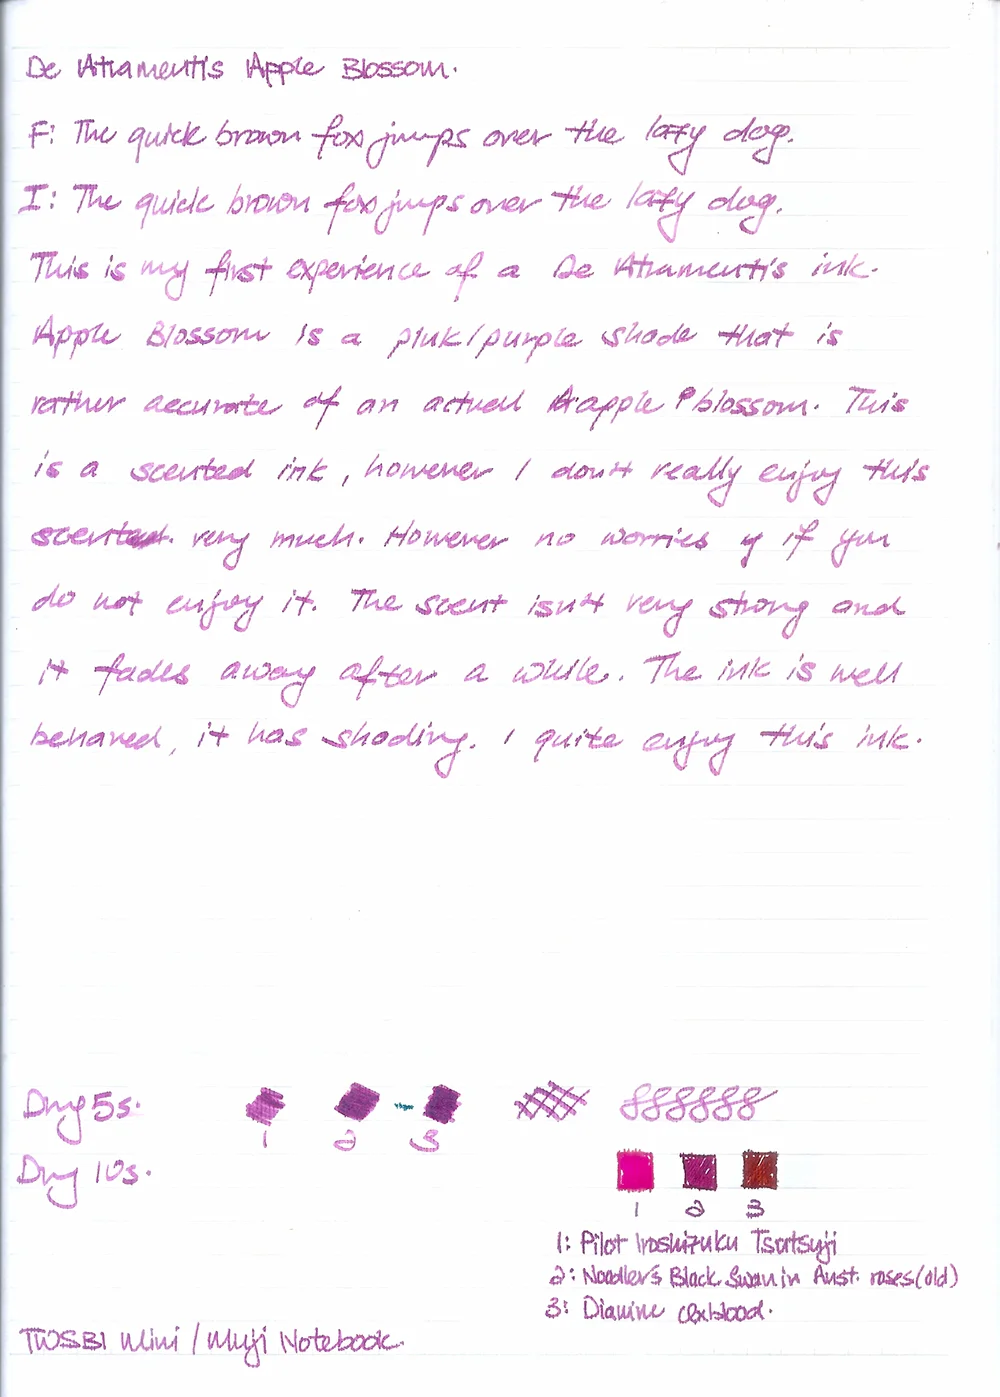 De Atramentis Apple Blossom.
F: The quick brown fox jumps over the lazy dog.
I: The quick brown fox jumps over the lazy dog.
This is my first experience of a De Atramentis ink.
Apple Blossom is a pink/purple shade that is
rather accurate of an actual apple blossom. This
is a scented ink, however I don't really enjoy this
scented. very much. However no worries if you
do not enjoy it. The scent isn't very strong and
it fades away after a while. The ink is well
behaved, it has shading. I quite enjoy this ink.
Dry 5s.
1 2 3
Dry 10s.
1 2 3
1: Pilot Iroshizuku Tsutsuji
2: Noodler's Black Swan in Aust. roses (old)
3: Diamine oxblood.
TWSBI Mini / Muji Notebook.